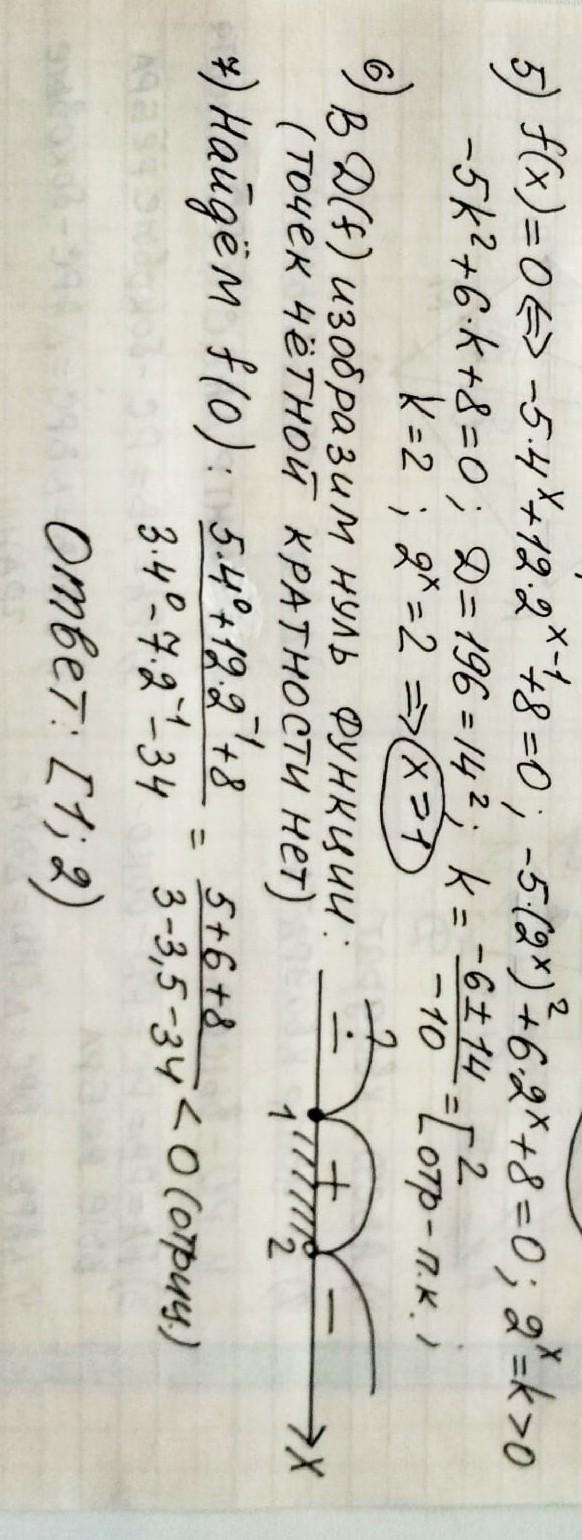 5) f(x)=0 <=> -5·4^x+12·2^(x-1)+8=0; -5·(2^x)^2+6·2^x+8=0; 2^x=k>0
-5k^2+6·k+8=0; D=196=14^2; k=(-6±14)/(-10)=[2 отр-п.к.;
k=2; 2^x=2 => x=1
6) В D(f) изобразим нуль функции: - ? 1 + 2 - x
(точек чётной кратности нет)
7) Найдём f(0): (5·4^0+12·2^(-1)+8)/(3·4^0-7·2^(-1)-34) = (5+6+8)/(3-3,5-34) < 0 (отриц.)
Ответ: [1; 2)